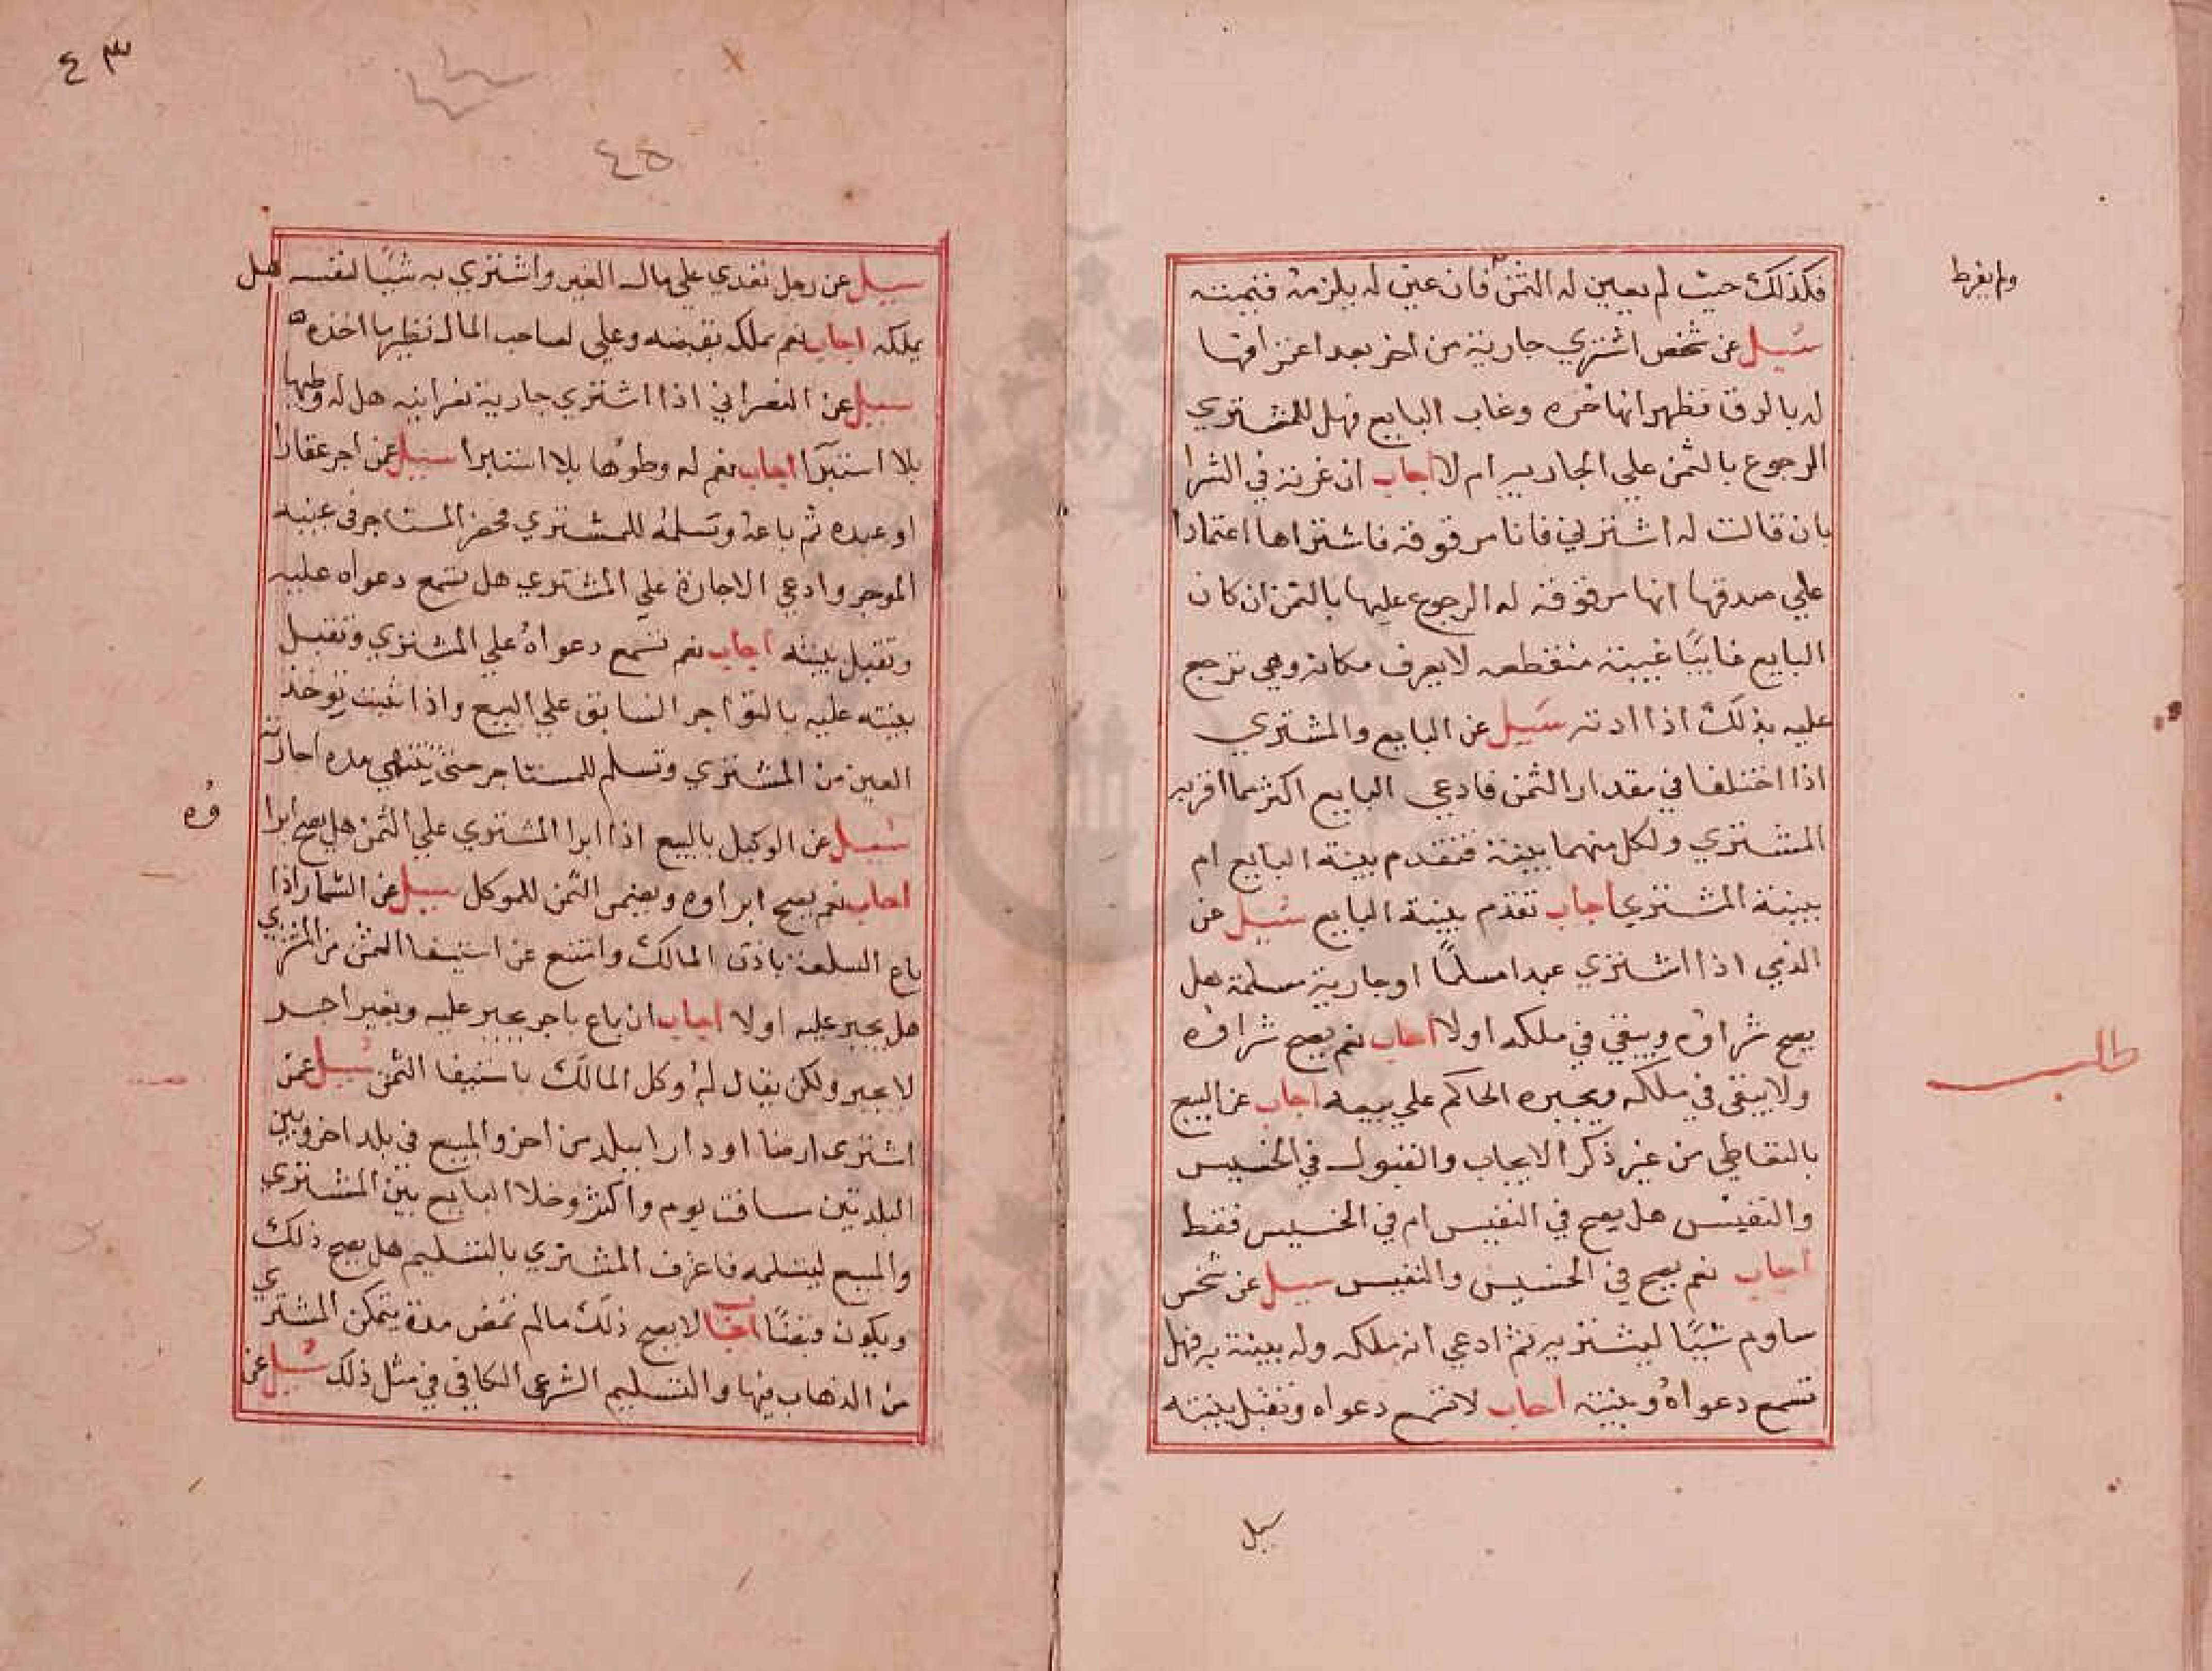 فكذلك حيث لم يعين له الثمن فان عين له يلزمه قيمته
ولم يفرط
سيل عن شخص اشتري جارية من اخر بعد اعترافها
له بالرق فظهر انها حره وغاب البايع فهل للمشتري
الرجوع بالثمن علي الجاريه ام لا اجاب ان غرته في الشرا
بان قالت له اشترني فانا مرقوقة فاشتراها اعتمادا
علي صدقها انها مرقوقه له الرجوع عليها بالثمن ان كان
البايع غايبًا غيبة منقطعه لا يعرف مكانه وهي ترجع
عليه بذلك اذا ادته سيل عن البايع والمشتري
اذا اختلفا في مقدار الثمن فادعي البايع اكثر مما اقر به
المشتري ولكل منهما بينة فتقدم بينة البايع ام
ببينة المشتري اجاب تقدم بينة البايع سيل عن
الذمي اذا اشتري عبدا مسلمًا او جارية مسلمة هل
يصح شراؤه ويبقي في ملكه اولا اجاب نعم يصح شراؤه
طالب
ولا يبقى في ملكه ويجبره الحاكم علي بيعه اجاب عن البيع
بالتعاطي من غير ذكر الايجاب والقبول في الخسيس
والنفيس هل يصح في النفيس ام في الخسيس فقط
اجاب نعم يصح في الخسيس والنفيس سيل عن شخص
ساوم شيًا ليشتريه ثم ادعي انه ملكه وله بينة به فهل
تسمع دعواه وبينته اجاب لا تسمع دعواه وتقبل بينته
سيل
٤٣
٤٥
سيل عن رجل تعدي علي مال الغير واشتري به شيًا لنفسه هل
يملكه اجاب نعم يملكه بقبضه وعلي لصاحب المال نظير ما اخذه
سيل عن النصراني اذا اشتري جارية نصرانيه هل له وطيها
بلا استبرا اجاب نعم له وطوها بلا استبرا سيل عمن اجر عقارا
او عبده ثم باعه وتسلمه للمشتري فحضر المستاجر في غيبه
الموجر وادعي الاجارة علي المشتري هل تسمع دعواه عليه
وتقبل بينته اجاب نعم تسمع دعواه علي المشتري وتقبل
بينته عليه بالتواجر السابق علي البيع واذا ثبت توخذ
العين من المشتري وتسلم للمستاجر حتى تنتهي مده اجارته
سيل عن الوكيل بالبيع اذا ابرا المشتري علي الثمن هل يصح ابرا
ؤه
اجاب نعم يصح ابراوه ويضمن الثمن للموكل سيل عن السمسار اذا
باع السلعة باذن المالك وامتنع عن استيفا الثمن من المشتري
هل يجبر عليه اولا اجاب ان باع باجر يجبر عليه وبغير اجر
لا يجبر ولكن يقال له وكل المالك باستيفا الثمن سيل عمن
اشترى ارضا او دارا ببلد من اخر والمبيع في بلد اخر وبين
البلدتين مسافت يوم واكثر وخلا البايع بين المشتري
والمبيع ليتسلمه فاعرف المشتري بالتسليم هل يصح ذلك
ويكون قبضًا اجاب لا يصح ذلك مالم تمض مدة يتمكن المشتري
من الذهاب فيها والتسليم الشرعي الكافي في مثل ذلك سيل عن